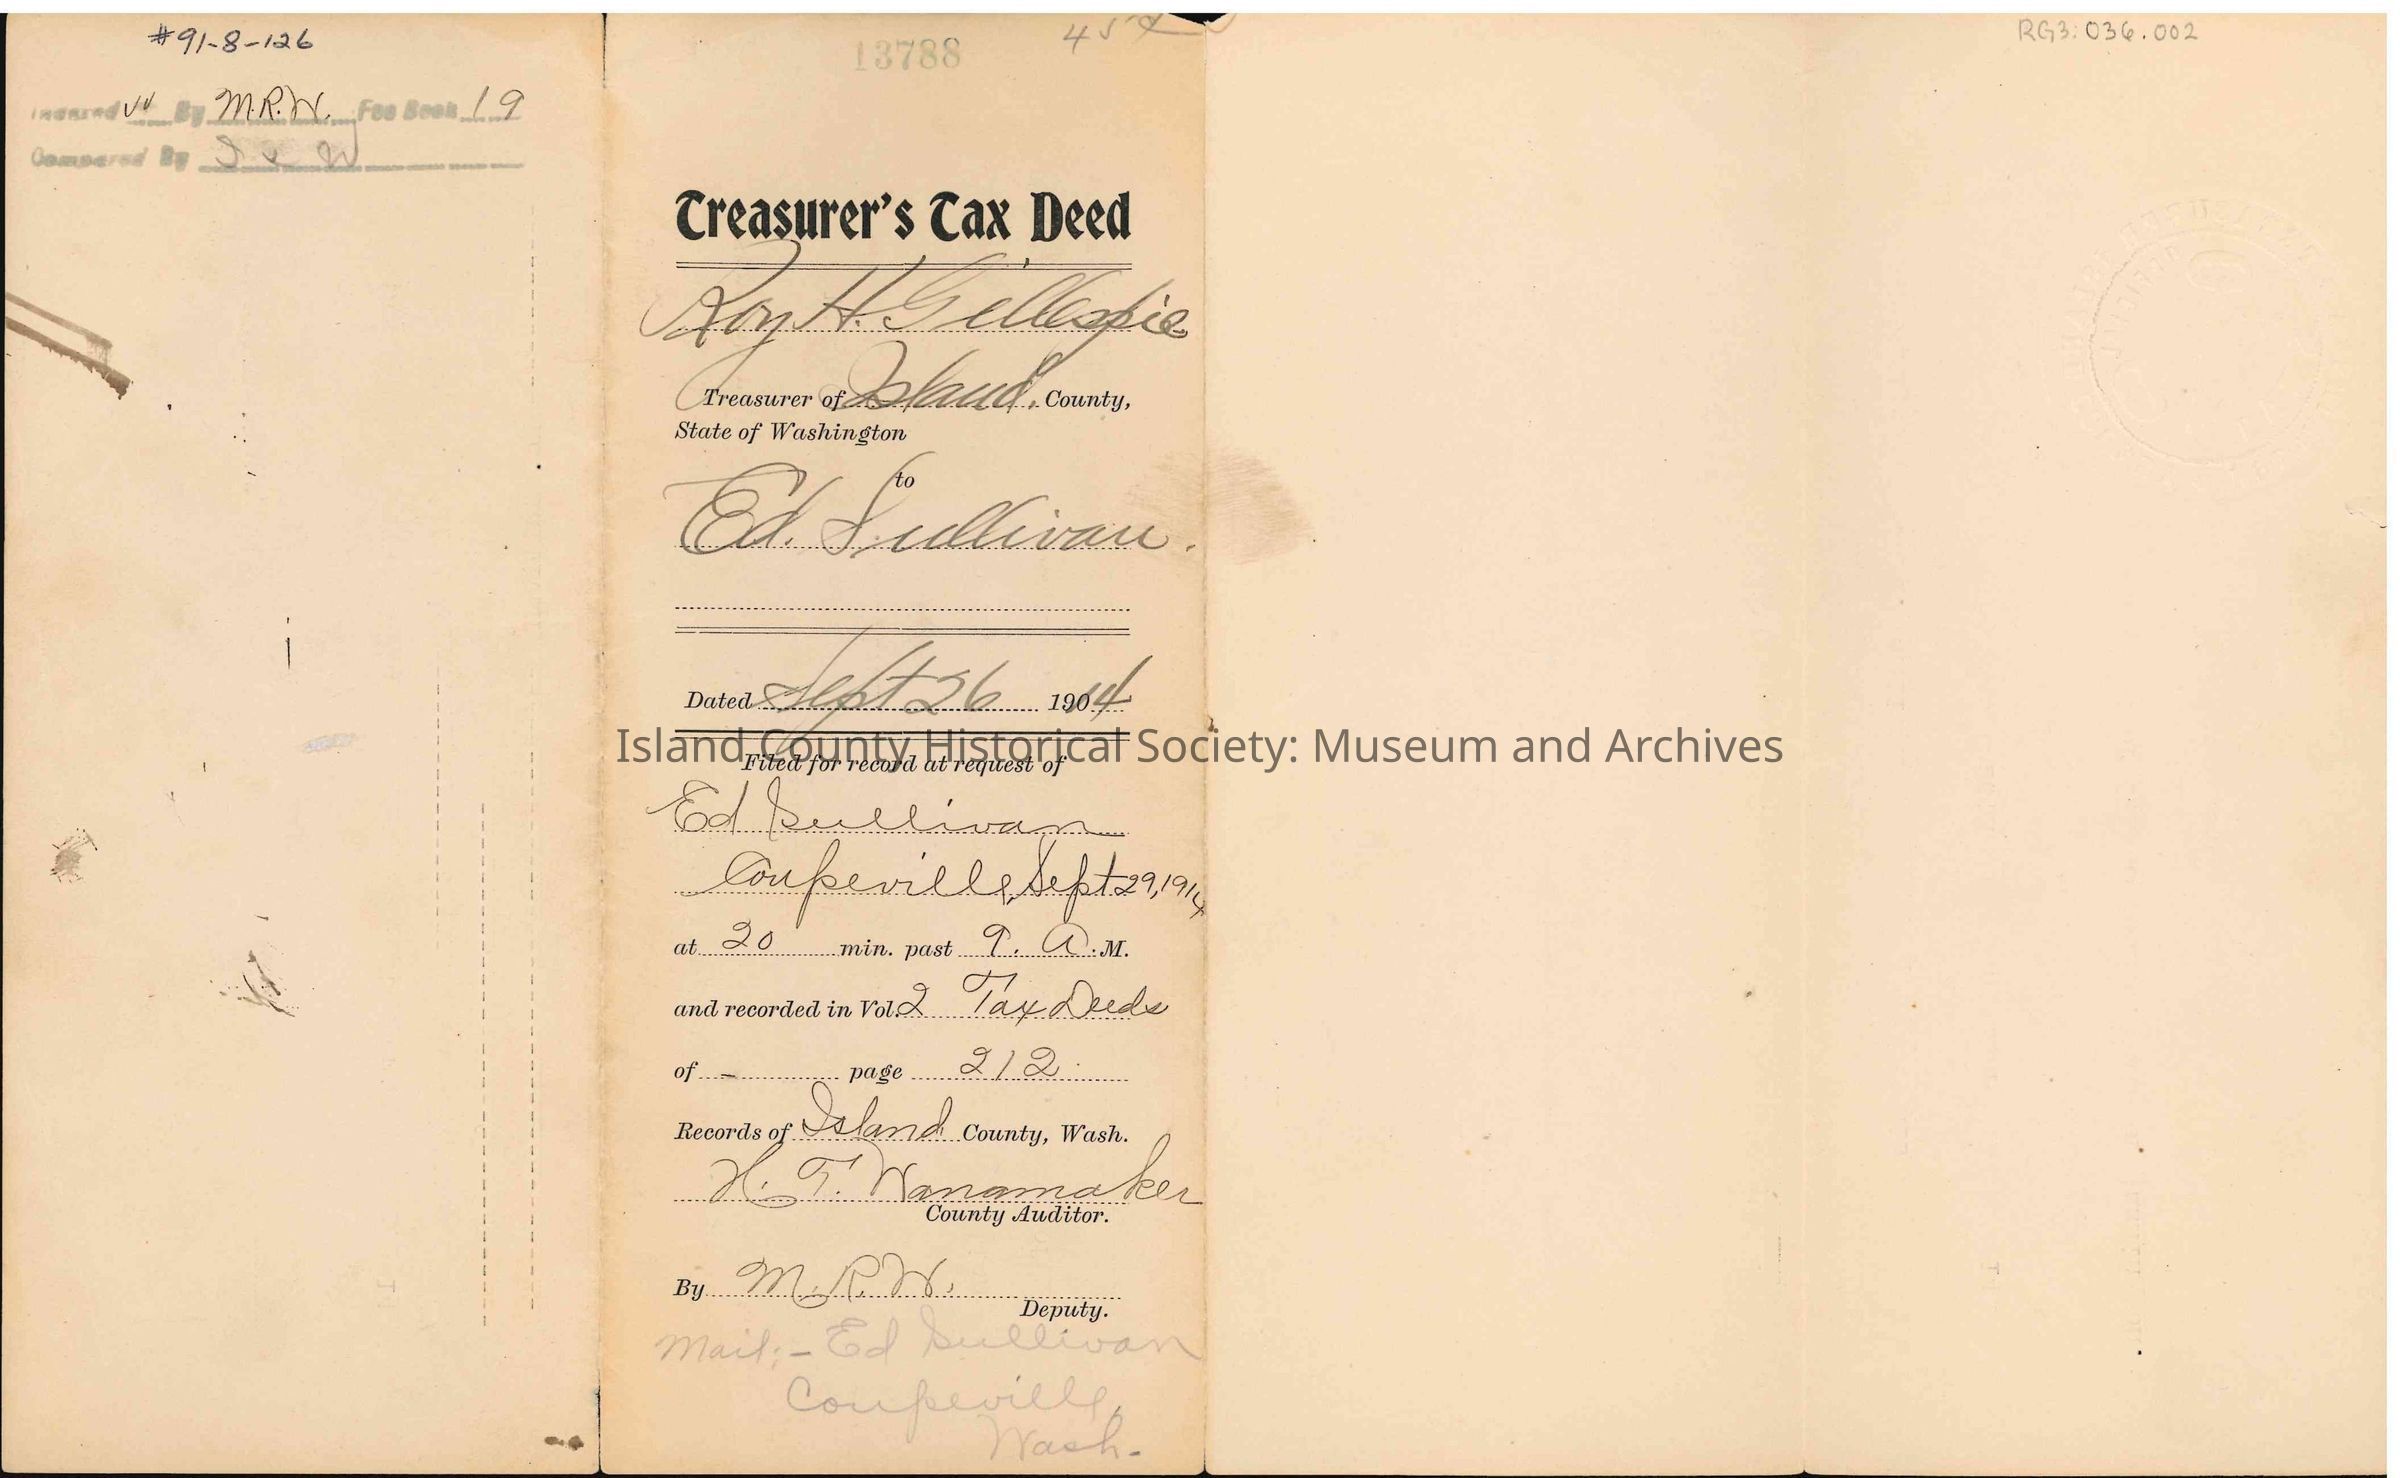 #91-8-126
Indexed By M.R.W. Fee Book 19
Compared By
13788
45¢
Treasurer's Tax Deed
Roy H. Gillespie
Treasurer of Island County,
State of Washington
to
Ed. Sullivan.
Dated Sept 26 1914
Filed for record at request of
Ed Sullivan
Coupeville, Sept 29, 1914
at 20 min. past 9. A. M.
and recorded in Vol. 2 Tax Deeds
of - page 212
Records of Island County, Wash.
H. T. Wanamaker
County Auditor.
By M. R. W.
Deputy.
Mail:- Ed Sullivan
Coupeville,
Wash-
RG3:036.002
Island County Historical Society: Museum and Archives